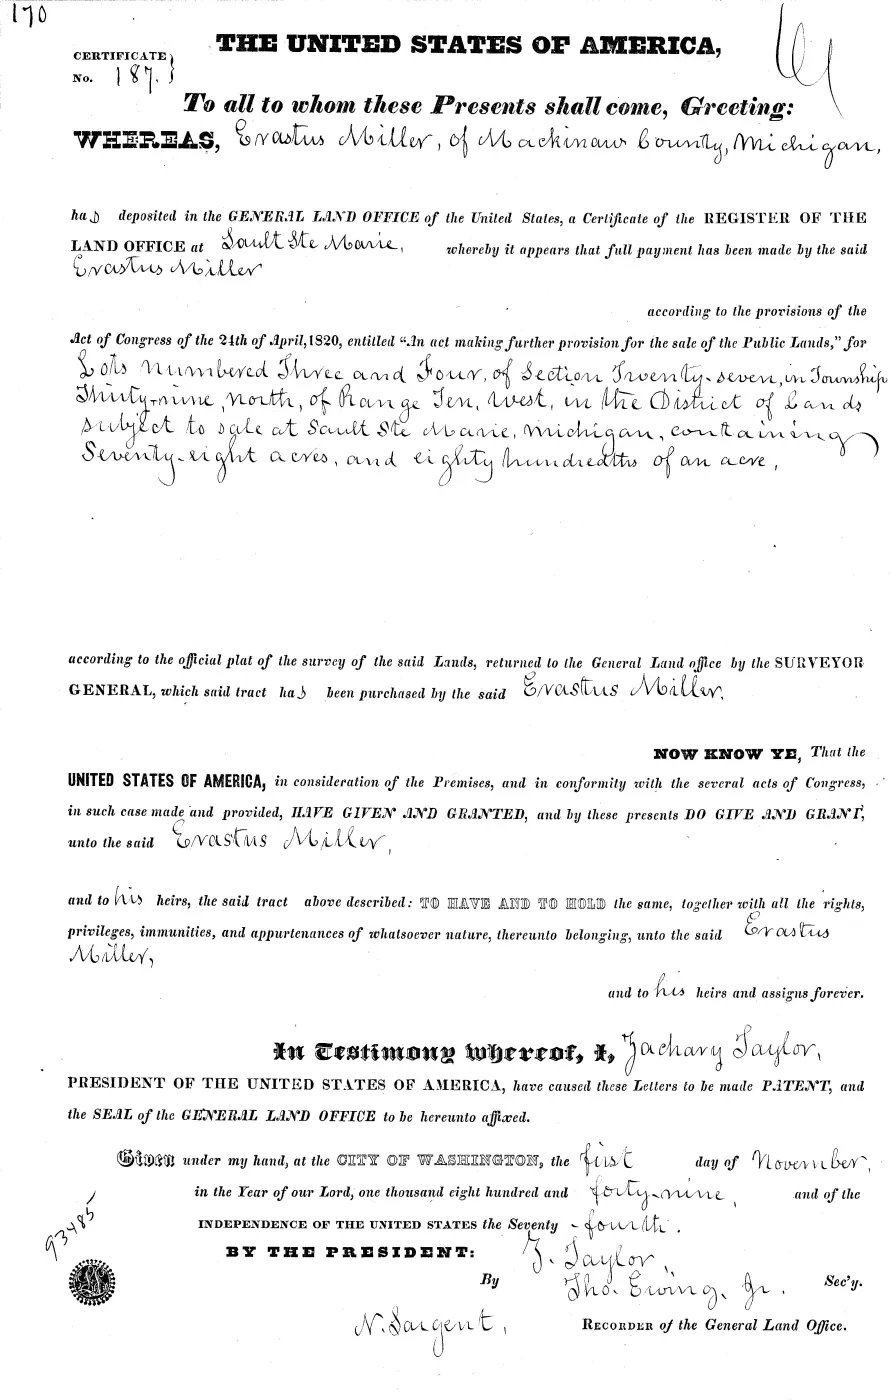 170
THE UNITED STATES OF AMERICA,
CERTIFICATE }
No. 187. }
To all to whom these Presents shall come, Greeting:
WHEREAS, Erastus Miller, of Mackinaw County, Michigan,
has deposited in the GENERAL LAND OFFICE of the United States, a Certificate of the REGISTER OF THE
LAND OFFICE at Sault Ste Marie, whereby it appears that full payment has been made by the said
Erastus Miller
according to the provisions of the
Act of Congress of the 24th of April, 1820, entitled "An act making further provision for the sale of the Public Lands," for
Lots numbered Three and Four, of Section Twenty-seven, in Township
Thirty-nine, north, of Range Ten, West, in the District of Lands
subject to sale at Sault Ste Marie, Michigan, containing
Seventy-eight acres, and eighty hundredths of an acre,
according to the official plat of the survey of the said Lands, returned to the General Land office by the SURVEYOR
GENERAL, which said tract has been purchased by the said Erastus Miller,
NOW KNOW YE, That the
UNITED STATES OF AMERICA, in consideration of the Premises, and in conformity with the several acts of Congress,
in such case made and provided, HAVE GIVEN AND GRANTED, and by these presents DO GIVE AND GRANT,
unto the said Erastus Miller,
and to his heirs, the said tract above described: TO HAVE AND TO HOLD the same, together with all the rights,
privileges, immunities, and appurtenances of whatsoever nature, thereunto belonging, unto the said Erastus
Miller,
and to his heirs and assigns forever.
In Testimony whereof, I, Zachary Taylor,
PRESIDENT OF THE UNITED STATES OF AMERICA, have caused these Letters to be made PATENT, and
the SEAL of the GENERAL LAND OFFICE to be hereunto affixed.
Given under my hand, at the CITY OF WASHINGTON, the first day of November,
in the Year of our Lord, one thousand eight hundred and forty-nine, and of the
INDEPENDENCE OF THE UNITED STATES the Seventy-fourth.
93485
BY THE PRESIDENT: Z. Taylor,
By Tho. Ewing, Jr. Sec'y.
N. Sargent, RECORDER of the General Land Office.